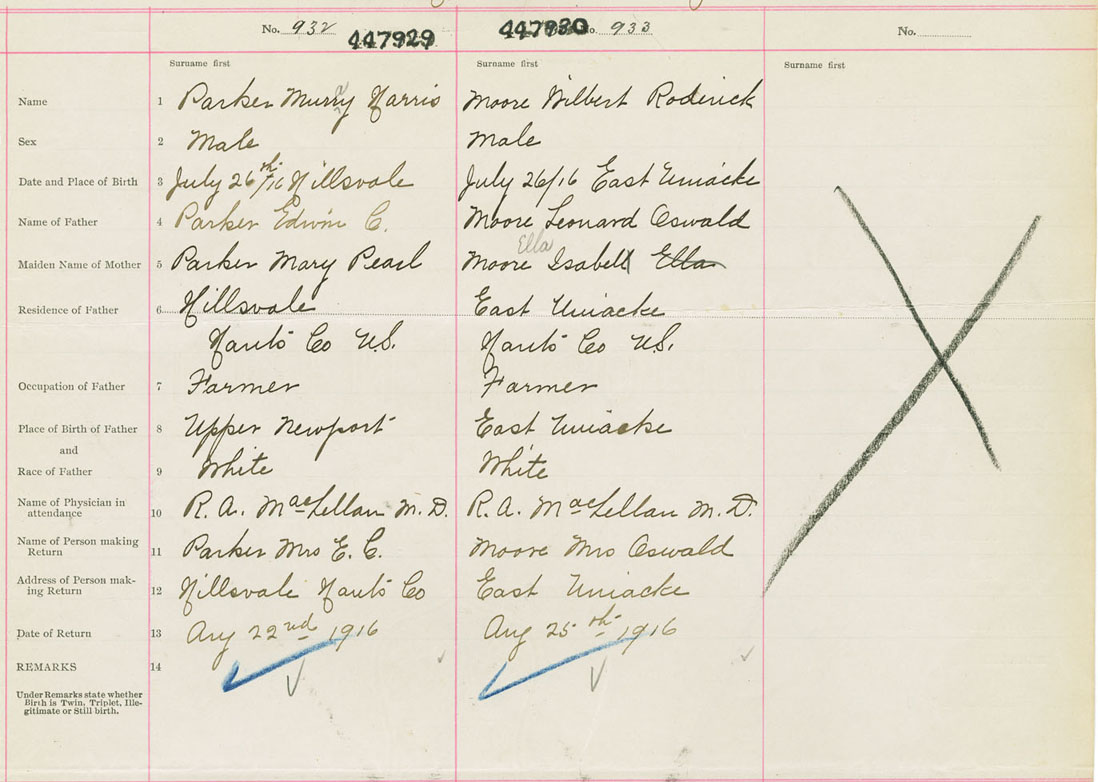 No. 932 447929 447930 No. 933 No.
Surname first Surname first Surname first
Name 1 Parker Murray Harris Moore Wilbert Roderick
Sex 2 Male Male
Date and Place of Birth 3 July 26th/16 Hillsvale July 26/16 East Uniacke
Name of Father 4 Parker Edwin C. Moore Leonard Oswald
Ella
Maiden Name of Mother 5 Parker Mary Pearl Moore Isabell Ella
Residence of Father 6 Hillsvale East Uniacke
Hants Co N.S. Hants Co N.S.
Occupation of Father 7 Farmer Farmer
Place of Birth of Father 8 Upper Newport East Uniacke
and
Race of Father 9 White White
Name of Physician in attendance 10 R. A. MacLellan M. D. R. A. MacLellan M. D.
Name of Person making Return 11 Parker Mrs E. C. Moore Mrs Oswald
Address of Person mak-
ing Return 12 Hillsvale Hants Co East Uniacke
Date of Return 13 Aug 22nd 1916 Aug 25th 1916
REMARKS 14
Under Remarks state whether
Birth is Twin, Triplet, Ille-
gitimate or Still birth.